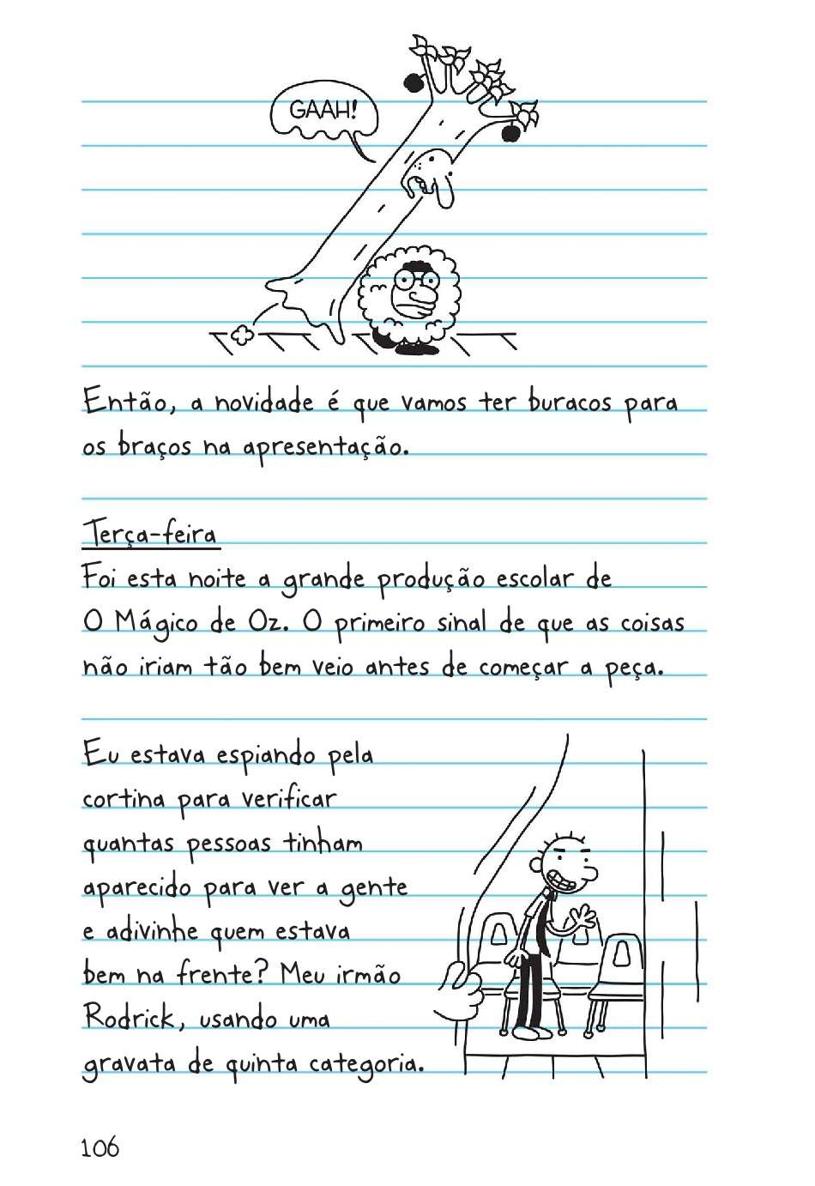 GAAH!
Então, a novidade é que vamos ter buracos para
os braços na apresentação.
Terça-feira
Foi esta noite a grande produção escolar de
O Mágico de Oz. O primeiro sinal de que as coisas
não iriam tão bem veio antes de começar a peça.
Eu estava espiando pela
cortina para verificar
quantas pessoas tinham
aparecido para ver a gente
e adivinhe quem estava
bem na frente? Meu irmão
Rodrick, usando uma
gravata de quinta categoria.
106